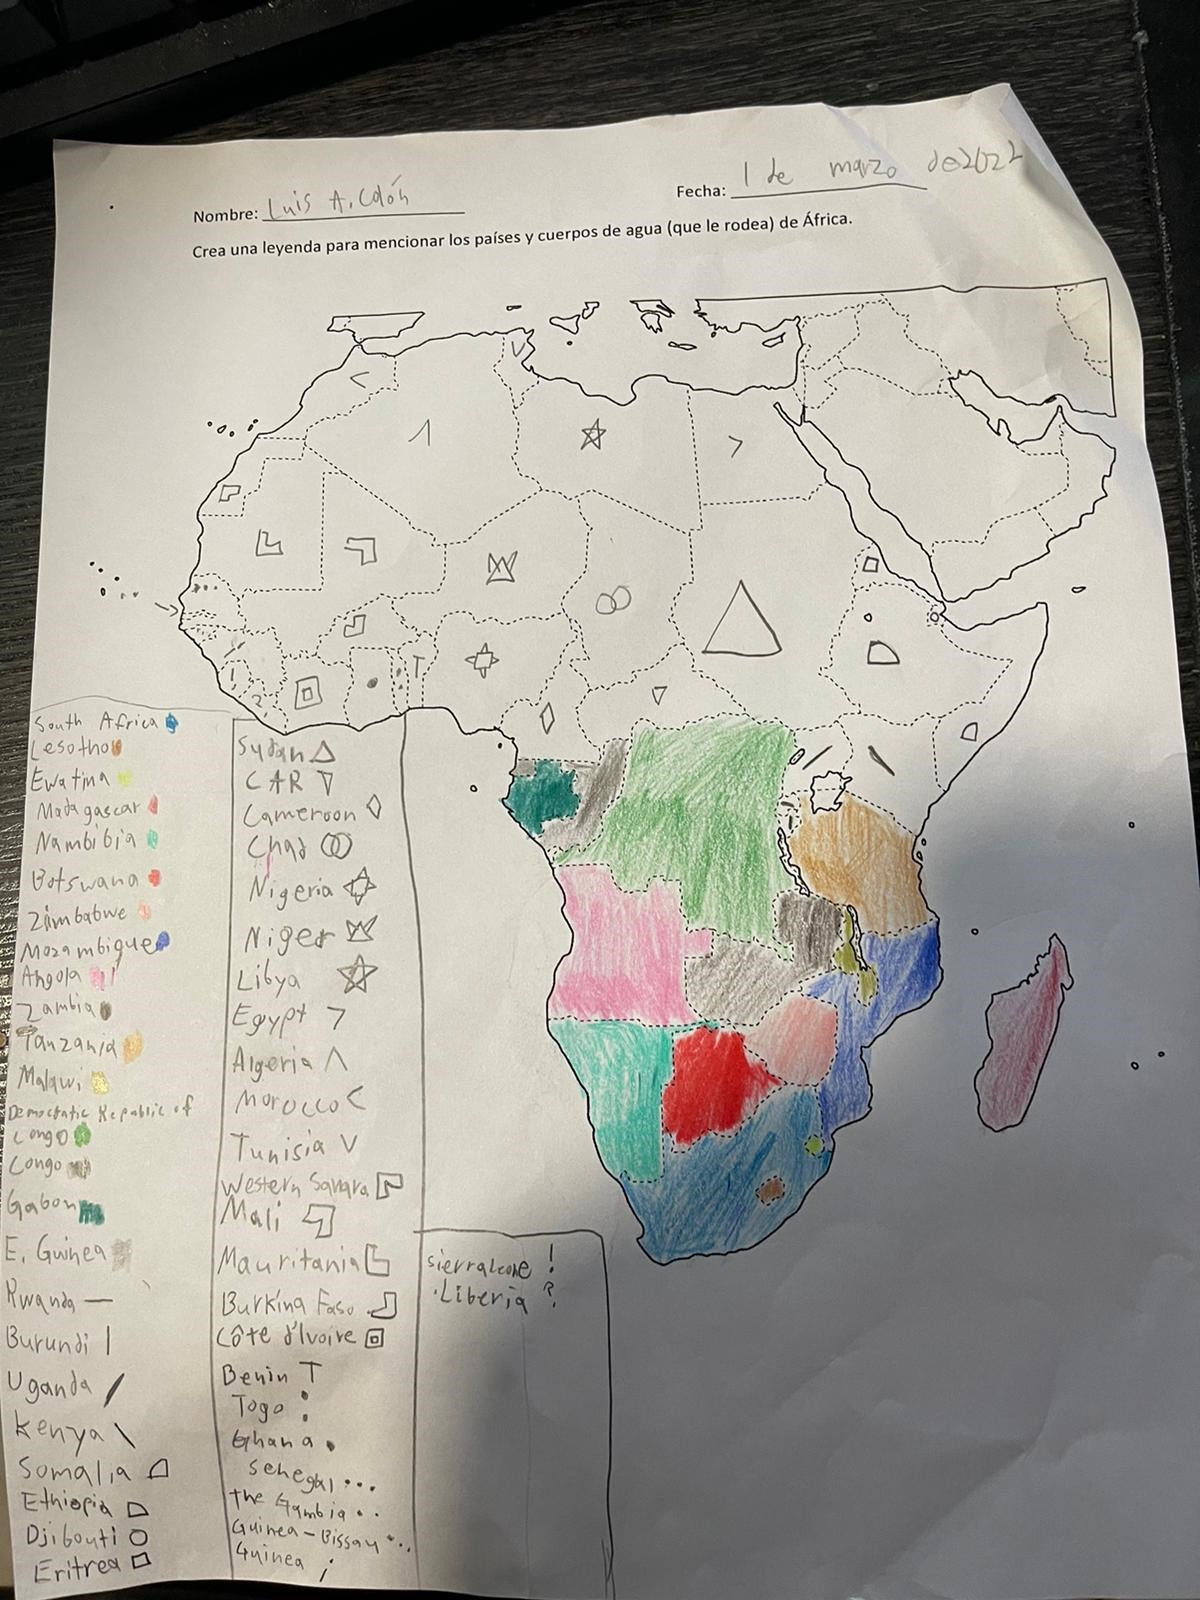 Nombre: Luis A. Colón
Fecha: 1 de marzo de 2022
Crea una leyenda para mencionar los países y cuerpos de agua (que le rodea) de África.
South Africa
Lesotho
Ewatina
Madagascar
Nambibia
Botswana
Zimbabwe
Mozambique
Angola
Zambia
Tanzania
Malawi
Democratic Republic of
Congo
Congo
Gabon
E. Guinea
Rwanda
Burundi
Uganda
Kenya
Somalia
Ethiopia
Djibouti
Eritrea
Sudan
CAR
Cameroon
Chad
Nigeria
Niger
Libya
Egypt
Algeria
Morocco
Tunisia
Western Sahara
Mali
Mauritania
Burkina Faso
Côte d'Ivoire
Benin T
Togo :
Ghana .
Senegal ...
The Gambia ..
Guinea-Bissau
Guinea
Sierraleone !
Liberia ?